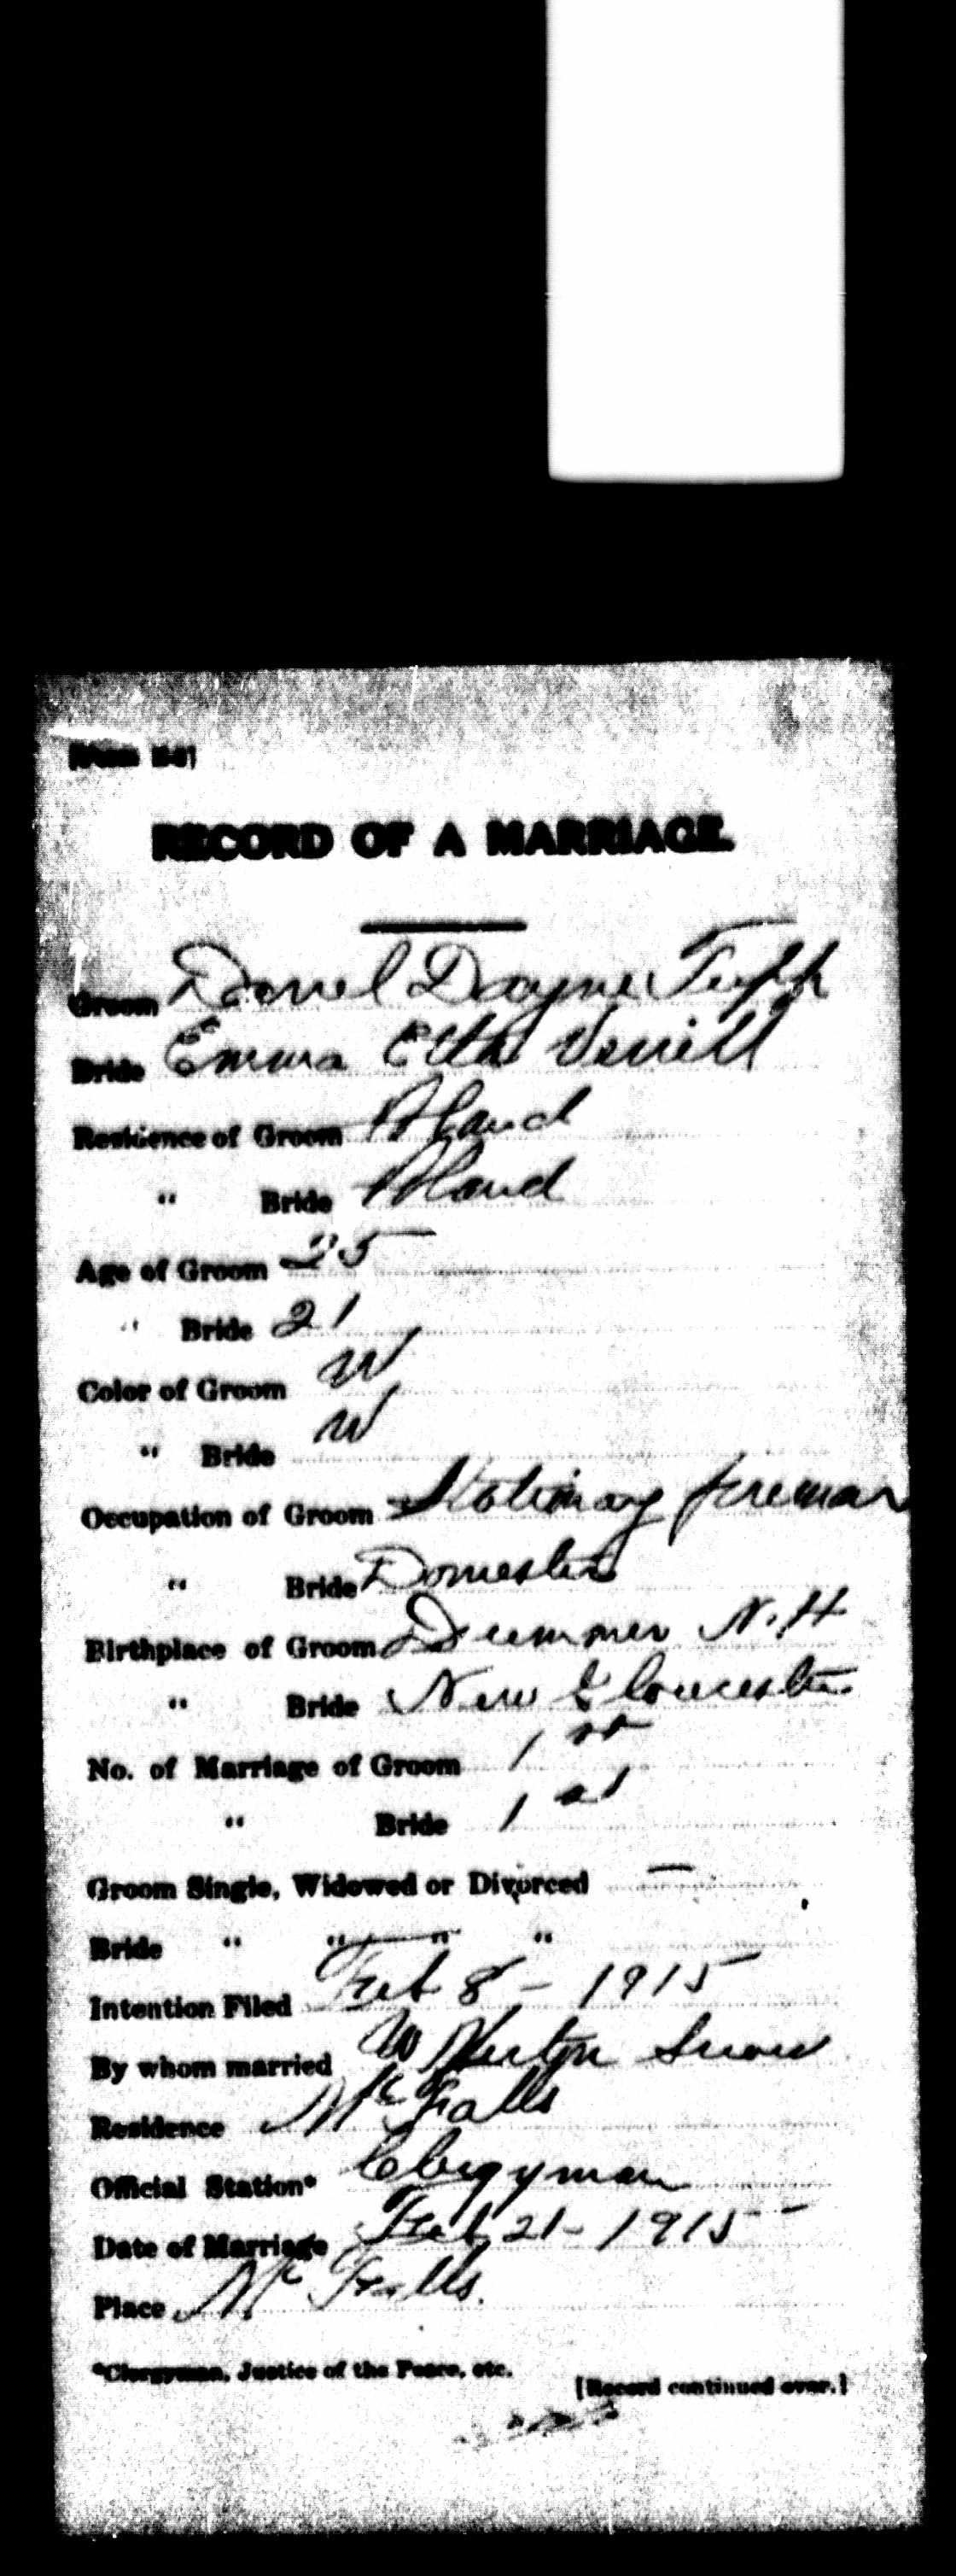 RECORD OF A MARRIAGE.
Groom Dayne
Bride Emma Etta Verrill
Residence of Groom Poland
" Bride Poland
Age of Groom 25
" Bride 21
Color of Groom W
" Bride W
Occupation of Groom fireman
" Bride Domestic
Birthplace of Groom Dummer N.H
" Bride New Gloucester
No. of Marriage of Groom 1st
" Bride 1st
Groom Single, Widowed or Divorced —
Bride " " " "
Intention Filed Feb 8 - 1915
By whom married W Snow
Residence Mc Falls
Official Station* Clergyman
Date of Marriage Feb 21 - 1915
Place Mc Falls.
*Clergyman, Justice of the Peace, etc.
[Record continued over.]